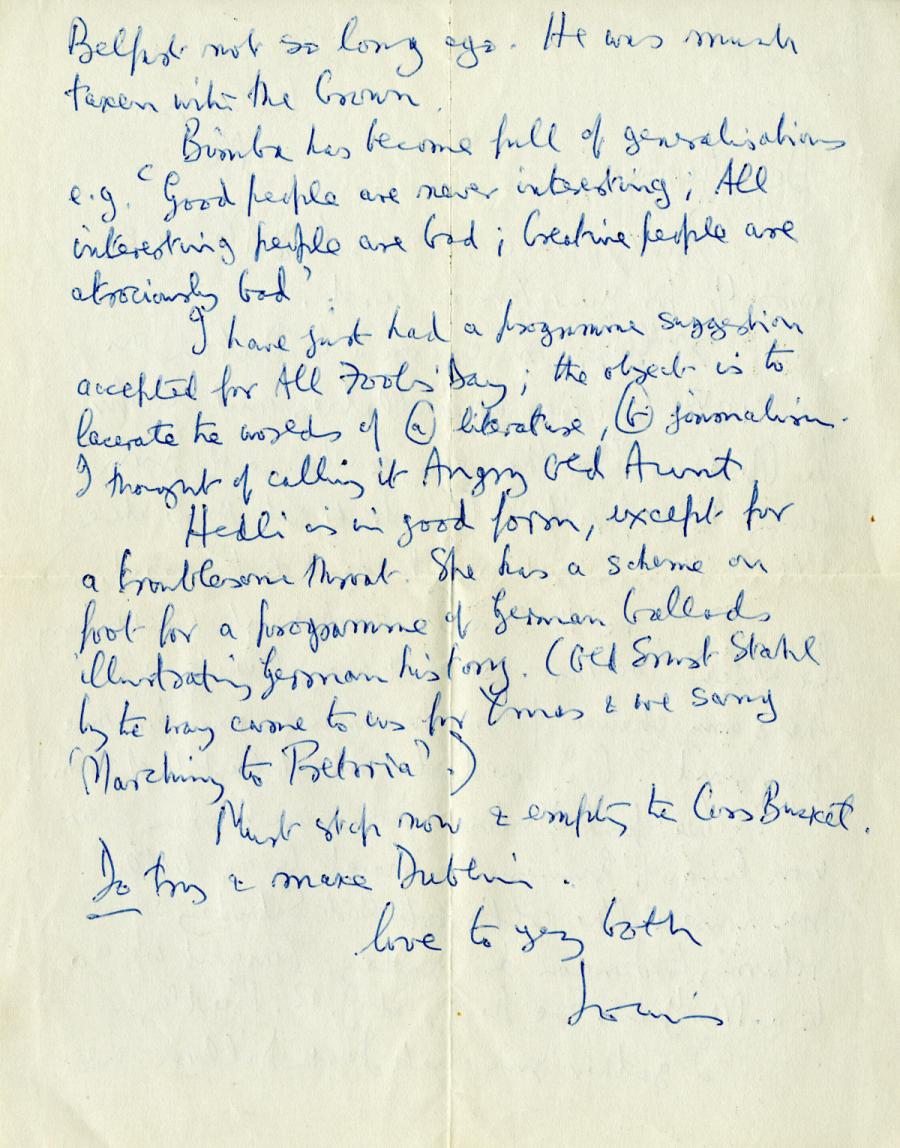 Belfast not so long ago. He was much
taken with the Crown.
Bimba has become full of generalisations
e.g. 'Good people are never interesting; All
interesting people are bad; Creative people are
atrociously bad'.
I have just had a programme suggestion
accepted for All Fools' Day; the object is to
lacerate the worlds of (a) literature, (b) journalism.
I thought of calling it Angry Old Aunt.
Hedli is in good form, except for
a troublesome throat. She has a scheme on
foot for a programme of German ballads
illustrating German history. (Old Ernst Stahl
by the way came to us for Xmas & we sang
'Marching to Pretoria'.)
Must stop now & empty the Cess Bucket.
Do try & make Dublin.
love to yez both
Louis